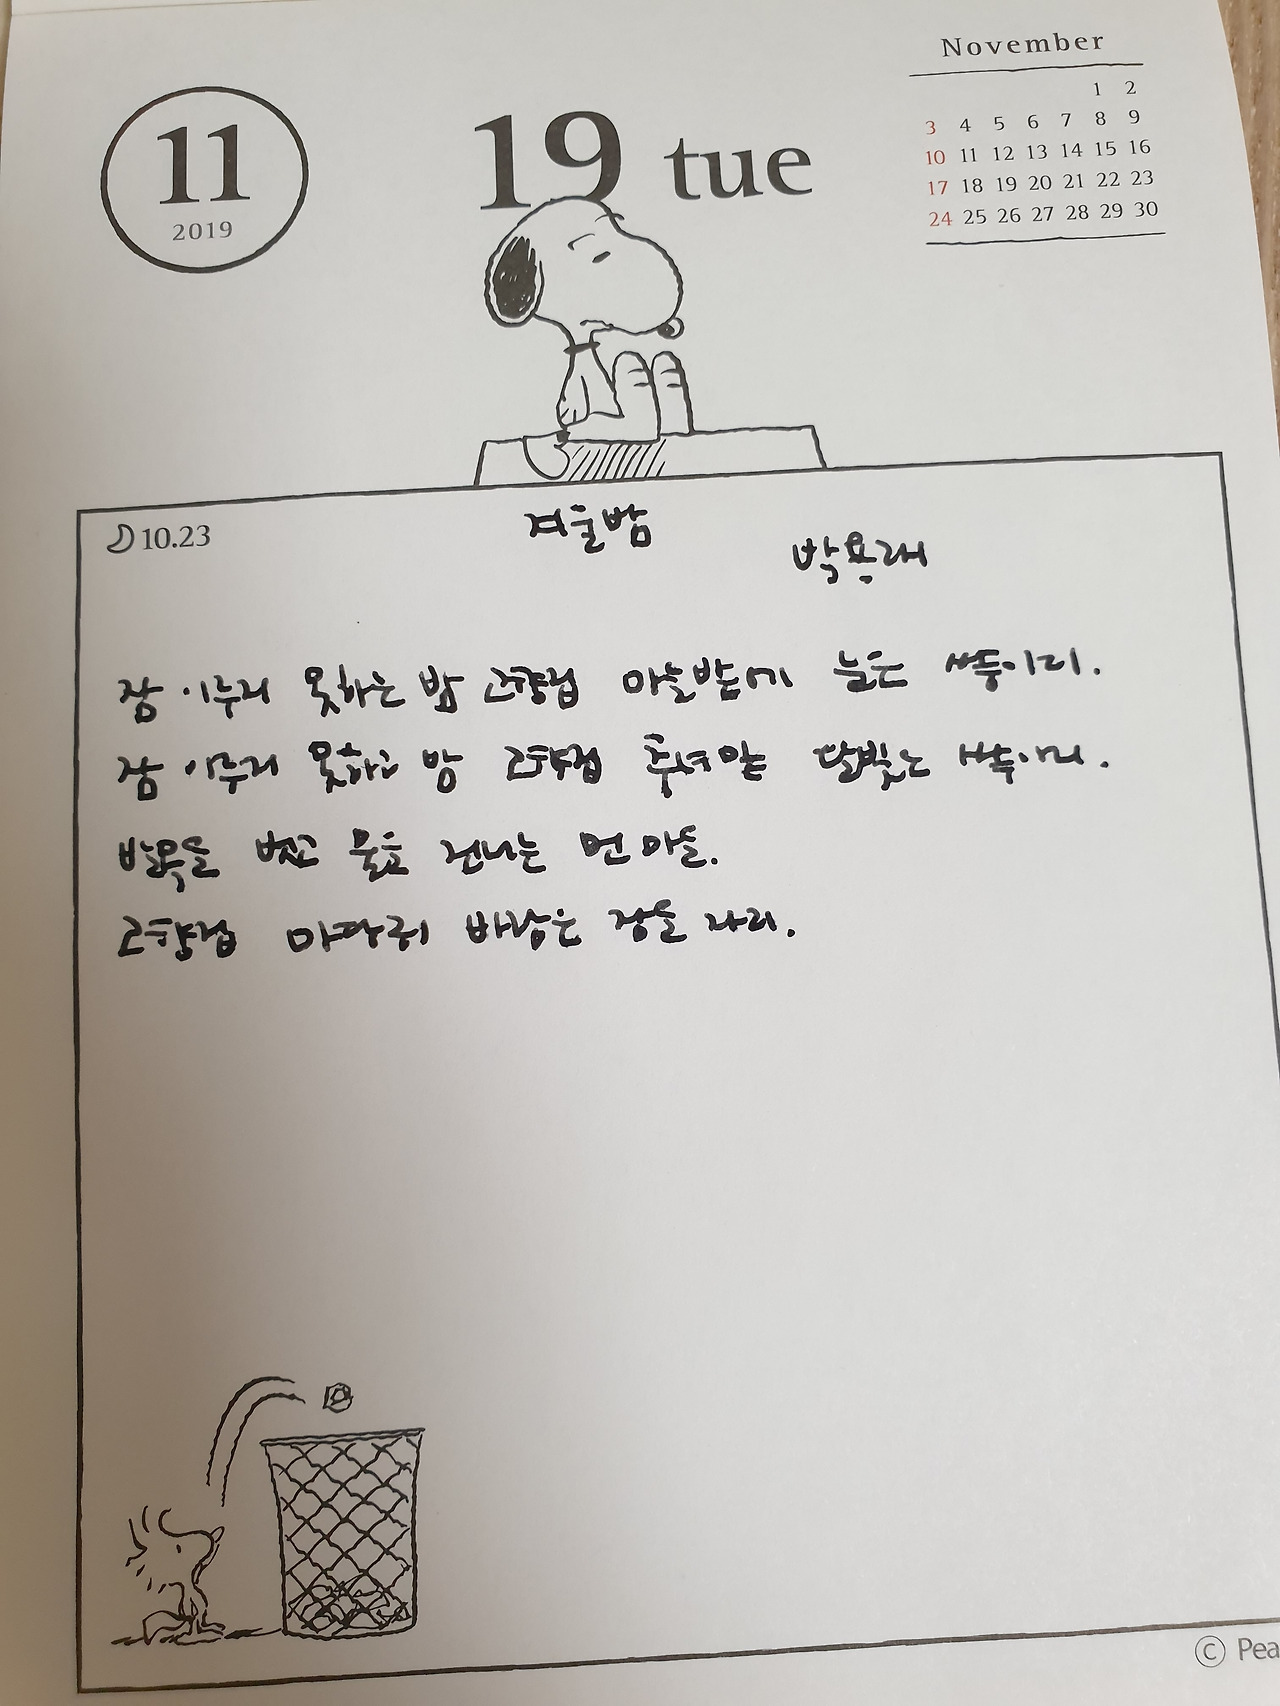 November
11
2019
19 tue
1 2
3 4 5 6 7 8 9
10 11 12 13 14 15 16
17 18 19 20 21 22 23
24 25 26 27 28 29 30
10.23
겨울밤
박용래
잠 이루지 못하는 밤 고향집 마늘밭에 눈은 쌓이리.
잠 이루지 못하고 밤 고향집 추녀밑 달빛은 쌓이리.
발목을 벗고 물을 건너는 먼 마을.
고향집 마당귀 바람은 잠을 자리.
© Pea